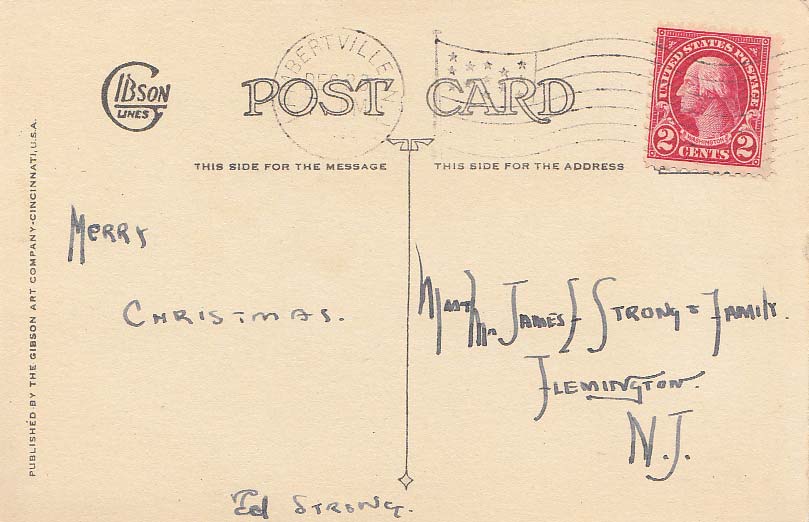 GIBSON
LINES
POST CARD
UNITED STATES POSTAGE
WASHINGTON
2 CENTS 2
THIS SIDE FOR THE MESSAGE
THIS SIDE FOR THE ADDRESS
PUBLISHED BY THE GIBSON ART COMPANY-CINCINNATI, U.S.A.
MERRY
CHRISTMAS.
Ed STRONG.
JAMES STRONG & FAMILY.
FLEMINGTON.
N.J.